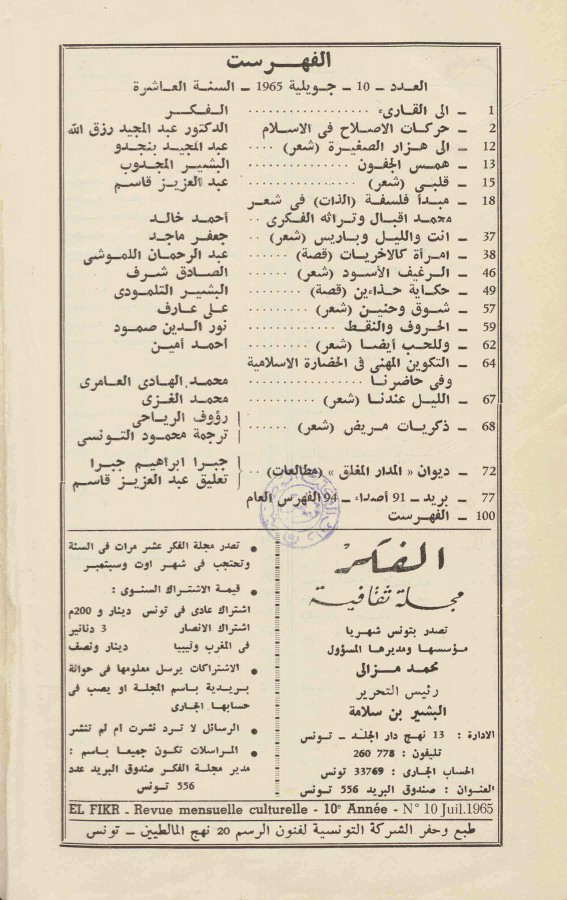 الفهرست
العدد ـ 10 ـ جويلية 1965 ـ السنة العاشرة
1 ـ الى القارىء .......... الفكر
2 ـ حركات الاصلاح فى الاسلام الدكتور عبد المجيد رزق الله
12 ـ الى هزار الصغيرة (شعر) .... عبد المجيد بنجدو
13 ـ همس الجفون .......... البشير المجدوب
15 ـ قلبى (شعر) .......... عبد العزيز قاسم
18 ـ مبدأ فلسفة (الذات) فى شعر
محمد اقبال وتراثه الفكرى .. أحمد خالد
37 ـ انت والليل وباريس (شعر) .. جعفر ماجد
38 ـ امرأة كالاخريات (قصة) .. عبد الرحمان اللموشى
46 ـ الرغيف الأسود (شعر) .... الصادق شرف
49 ـ حكاية حذاءين (قصة) .... البشير التلمودى
57 ـ شوق وحنين (شعر) ...... على عارف
59 ـ الحروف والنقط .......... نور الدين صمود
62 ـ وللحب أيضا (شعر) ...... احمد أمين
64 ـ التكوين المهنى فى الحضارة الاسلامية
وفى حاضرنا .......... محمد الهادى العامرى
67 ـ الليل عندنا (شعر) ...... محمد الغزى
68 ـ ذكريات مريض (شعر) .... رؤوف الرياحى
ترجمة محمود التونسى
72 ـ ديوان « المدار المغلق » (مطالعات) .. جبرا ابراهيم جبرا
تعليق عبد العزيز قاسم
77 ـ بريد ـ 91 أصداء ـ 94 الفهرس العام
100 ـ الفهرست
الفكر
مجلة ثقافية
تصدر بتونس شهريا
مؤسسها ومديرها المسؤول
محمد مزالى
رئيس التحرير
البشير بن سلامة
الادارة : 13 نهج دار الجلد ـ تونس
تليفون : 778 260
الحساب الجارى : 33769 تونس
العنوان : صندوق البريد 556 تونس
• تصدر مجلة الفكر عشر مرات فى السنة
وتحتجب فى شهر اوت وسبتمبر
• قيمة الاشتراك السنوى :
اشتراك عادى فى تونس دينار و 200م
اشتراك الانصار 3 دنانير
فى المغرب وليبيا دينار ونصف
• الاشتراكات يرسل معلومها فى حوالة
بريدية باسم المجلة او يصب فى
حسابها الجارى
• الرسائل لا ترد نشرت ام لم تنشر
• المراسلات تكون جميعا باسم :
مدير مجلة الفكر صندوق البريد عدد
556 تونس
EL FIKR - Revue mensuelle culturelle - 10e Année - N° 10 Juil.1965
طبع وحفر الشركة التونسية لفنون الرسم 20 نهج المالطيين ـ تونس